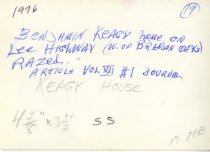 1976
19
BENJAMIN KEAGY home on
Lee Highway (W. of BRANSON OAKS)
RAZED..
ARTICLE VOL VII #1 JOURNAL
KEAGY HOUSE
4 5/8" x 3 1/2" SS